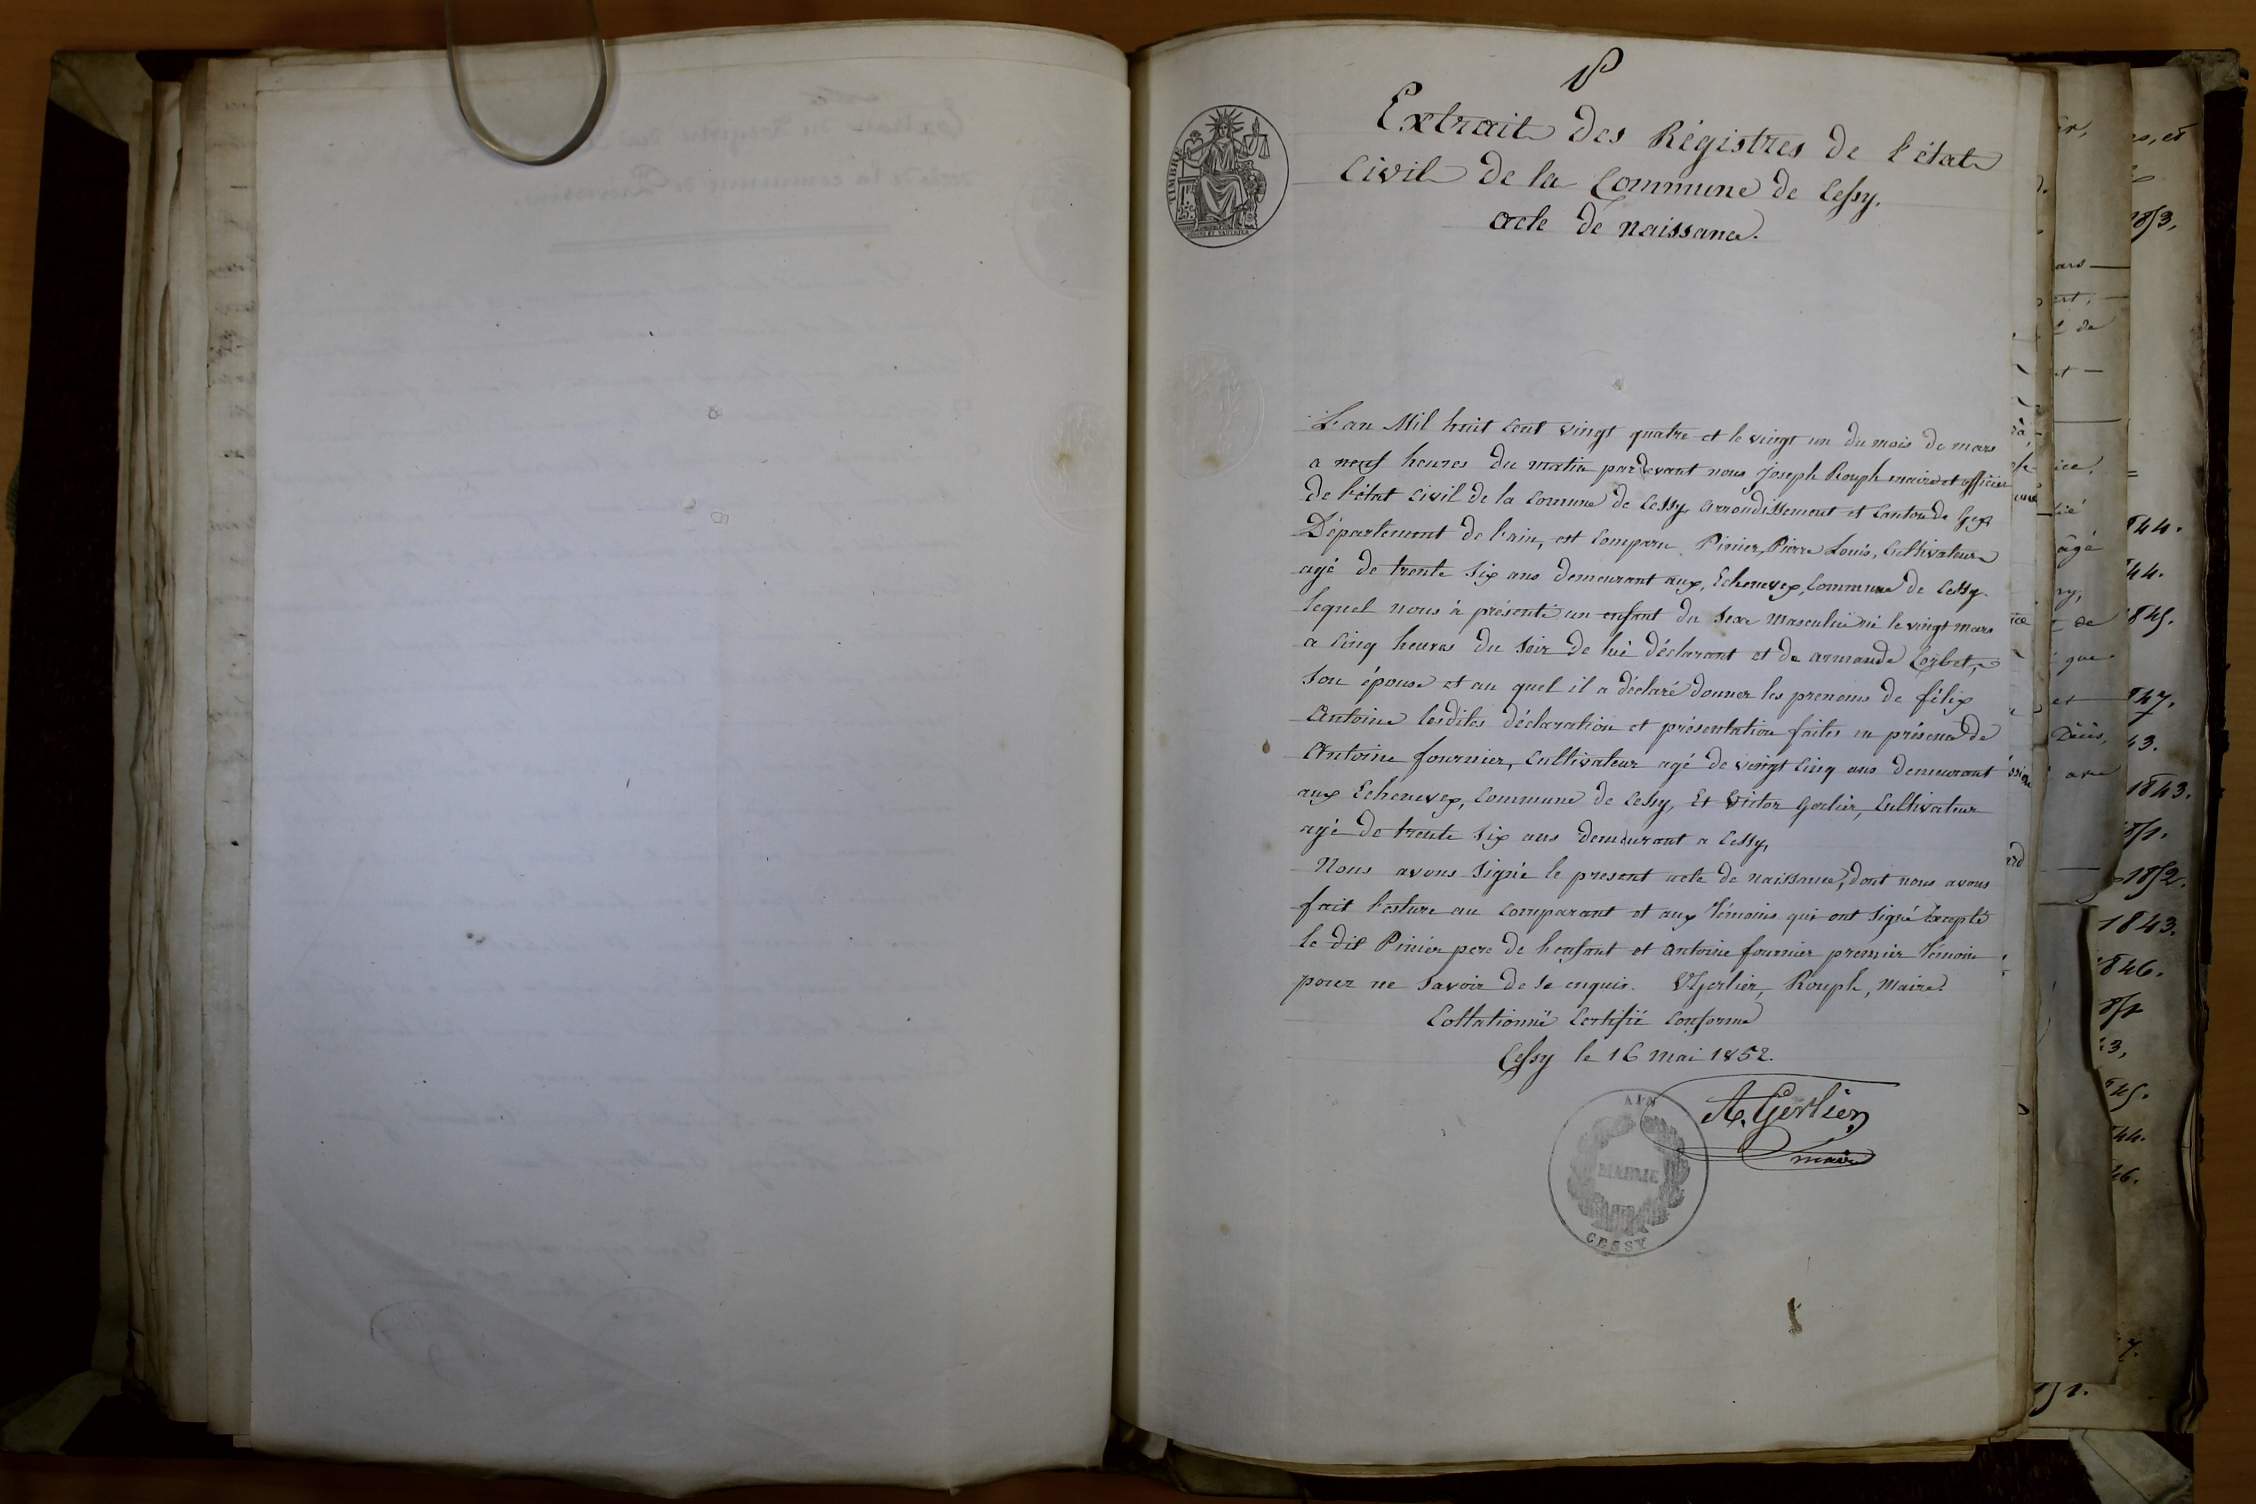 Extrait des Régistres de l'état
civil de la Commune de Cessy.
acte de naissance.
TIMBRE
L'an Mil huit cent vingt quatre et le vingt un du mois de mars
a neuf heures du matin pardevant nous Joseph Rouph maire et officier
de l'état civil de la comune de Cessy arrondissement et Canton de Gex
Département de l'ain, est comparu Pinier, Pierre Louis, Cultivateur
agé de trente six ans demeurant aux, Echenevex, Commune de Cessy.
lequel nous à présenté un enfant du sexe Masculin né le vingt mars
a cinq heures du soir de lui déclarant et de armande
son épouse et au quel il a déclaré donner les prenoms de félix
Antoine lesdites déclaration et présentation faites en présence de
Antoine fournier, Cultivateur agé de vingt cinq ans demeurant
aux Echenevex, Commune de Cessy, Et Victor Gerlier, Cultivateur
agé de trente six ans demeurant a Cessy,
Nous avons signé le present acte de naissance, dont nous avons
fait lecture au comparant et aux témoins qui ont signé excepté
le dit Pinier pere de l'enfant et antoine fournier premier témoin
pour ne savoir de se enquis. VGerlier, Rouph, Maire.
Collationné Certifié Conforme
Cessy le 16 mai 1852.
A. Gerlier,
maire
AIN
MAIRIE
CESSY
1853,
1843.
1852.
1843.